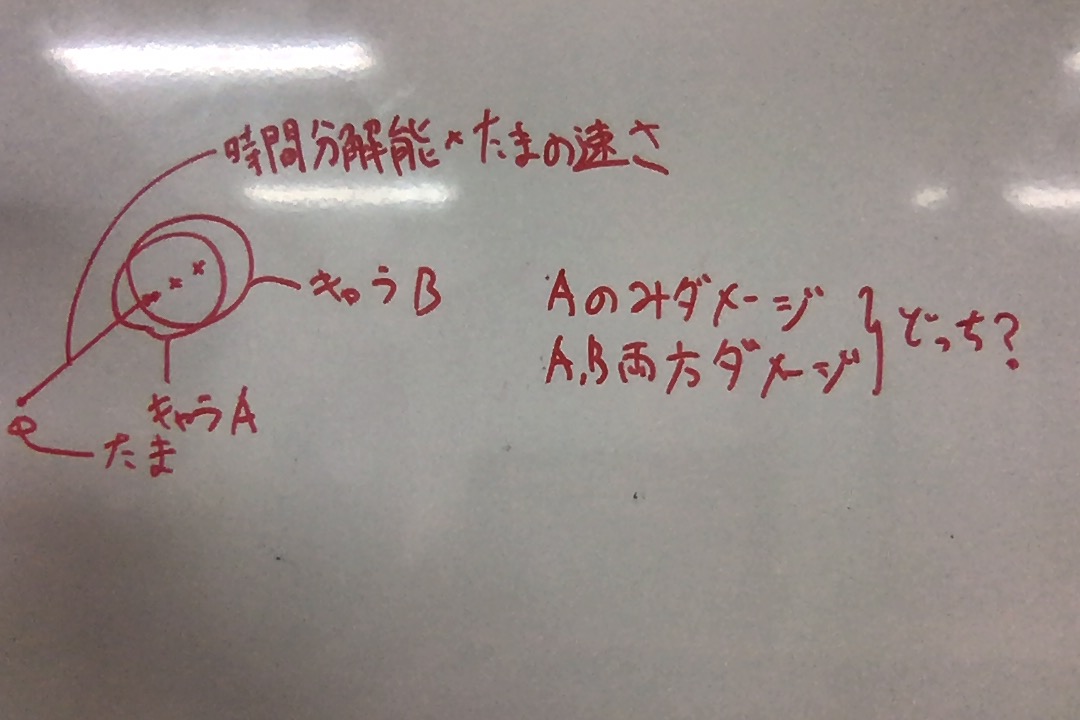 時間分解能×たまの速さ
きゃらB
きゃらA
たま
Aのみダメージ
A,B両方ダメージ
どっち?